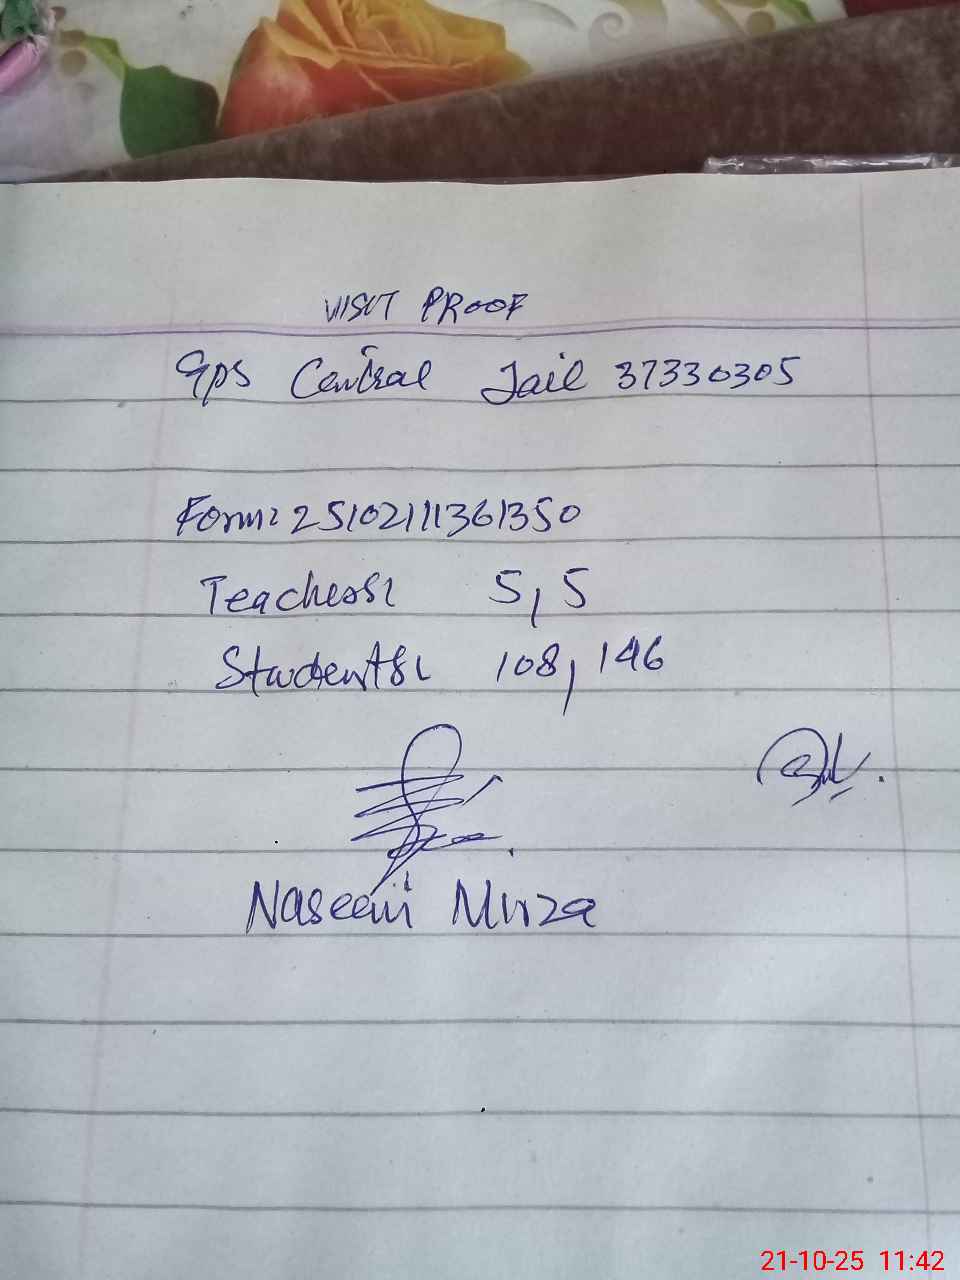 VISIT PROOF
GPS Central Jail 37330305
Form: 25102111361350
Teachers: 5, 5
Students: 108, 146
Naseem Mirza
21-10-25 11:42